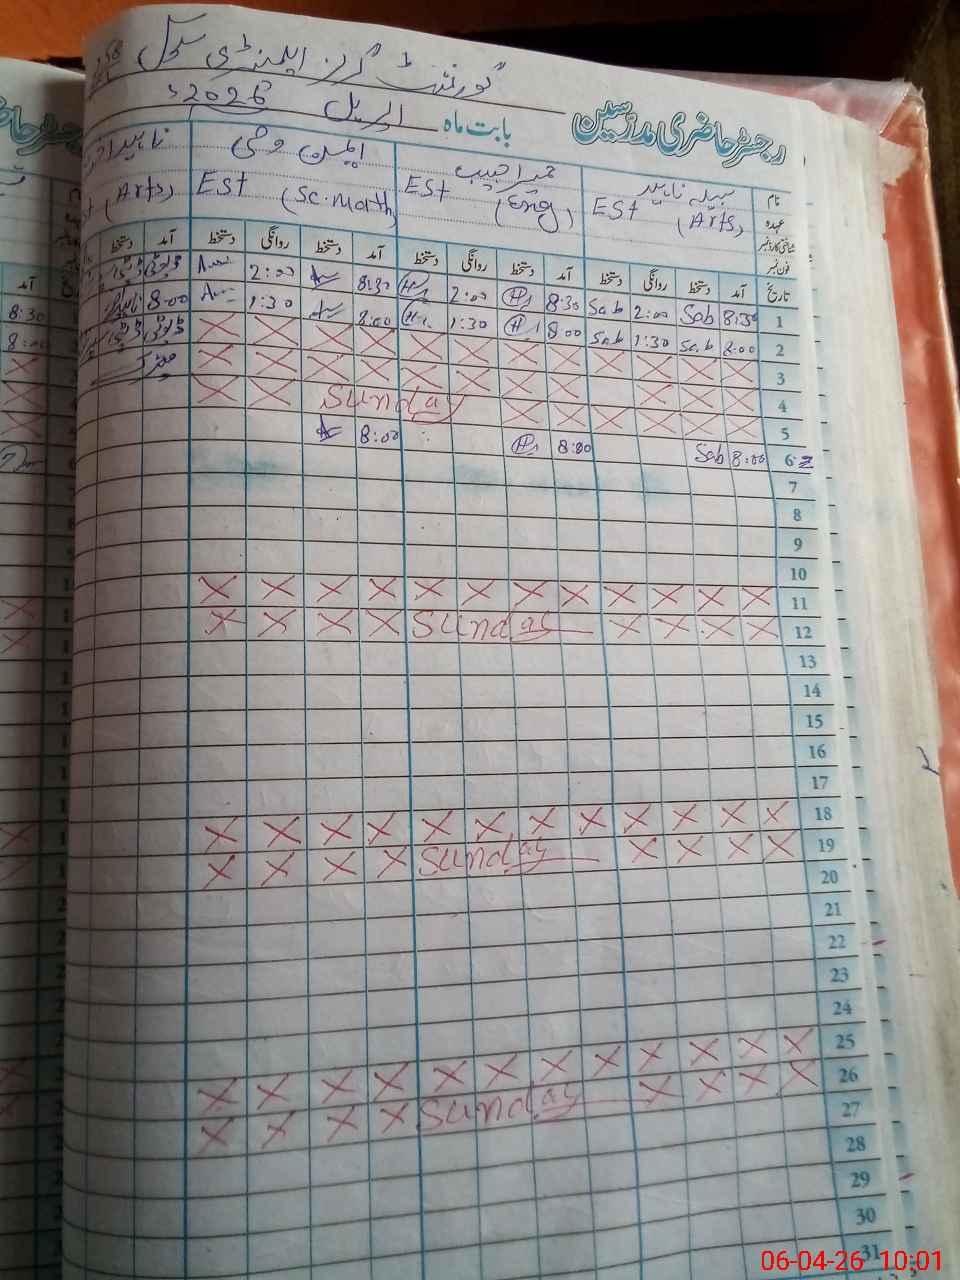 گورنمنٹ گرلز ایلمنٹری سکول 58
رجسٹر حاضری مدرسین بابت ماہ اپریل 2026ء
نام نبیلہ ناہید حمیرا حبیب
عہدہ EST (Arts) EST (Eng) EST (Sc.Math) (Arts)
شناختی کارڈ نمبر
فون نمبر
تاریخ آمد دستخط روانگی دستخط آمد دستخط روانگی دستخط آمد دستخط روانگی دستخط آمد دستخط
1 8:30 Sab 2:00 Sab 8:30 2:00 8:30 2:00
2 8:00 Sab 1:30 Sab 8:00 1:30 8:00 1:30 8:00
3
4
5 Sunday
6 8:00 Sab 8:00 8:00
7
8
9
10
11
12 Sunday
13
14
15
16
17
18
19 Sunday
20
21
22
23
24
25
26 Sunday
27
28
29
30
31
آمد
8:30
8:00
06-04-26 10:01